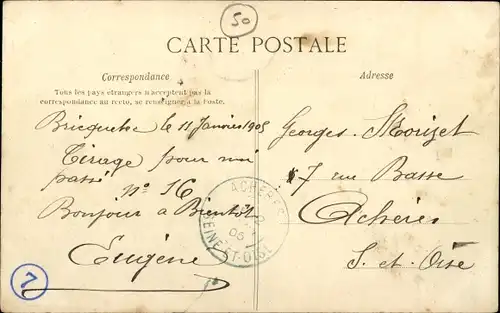 50
CARTE POSTALE
Correspondance
Tous les pays étrangers n'acceptent pas la
correspondance au recto, se renseigner à la Poste.
Bricquebec le 11 Janvier 1905
Tirage pour moi
passé
No 16
Bonjour à Bientôt
Eugène
7
ACHÈRES
SEINE-ET-OISE
Adresse
Georges Morizet
7 rue Basse
Achères
S. et Oise